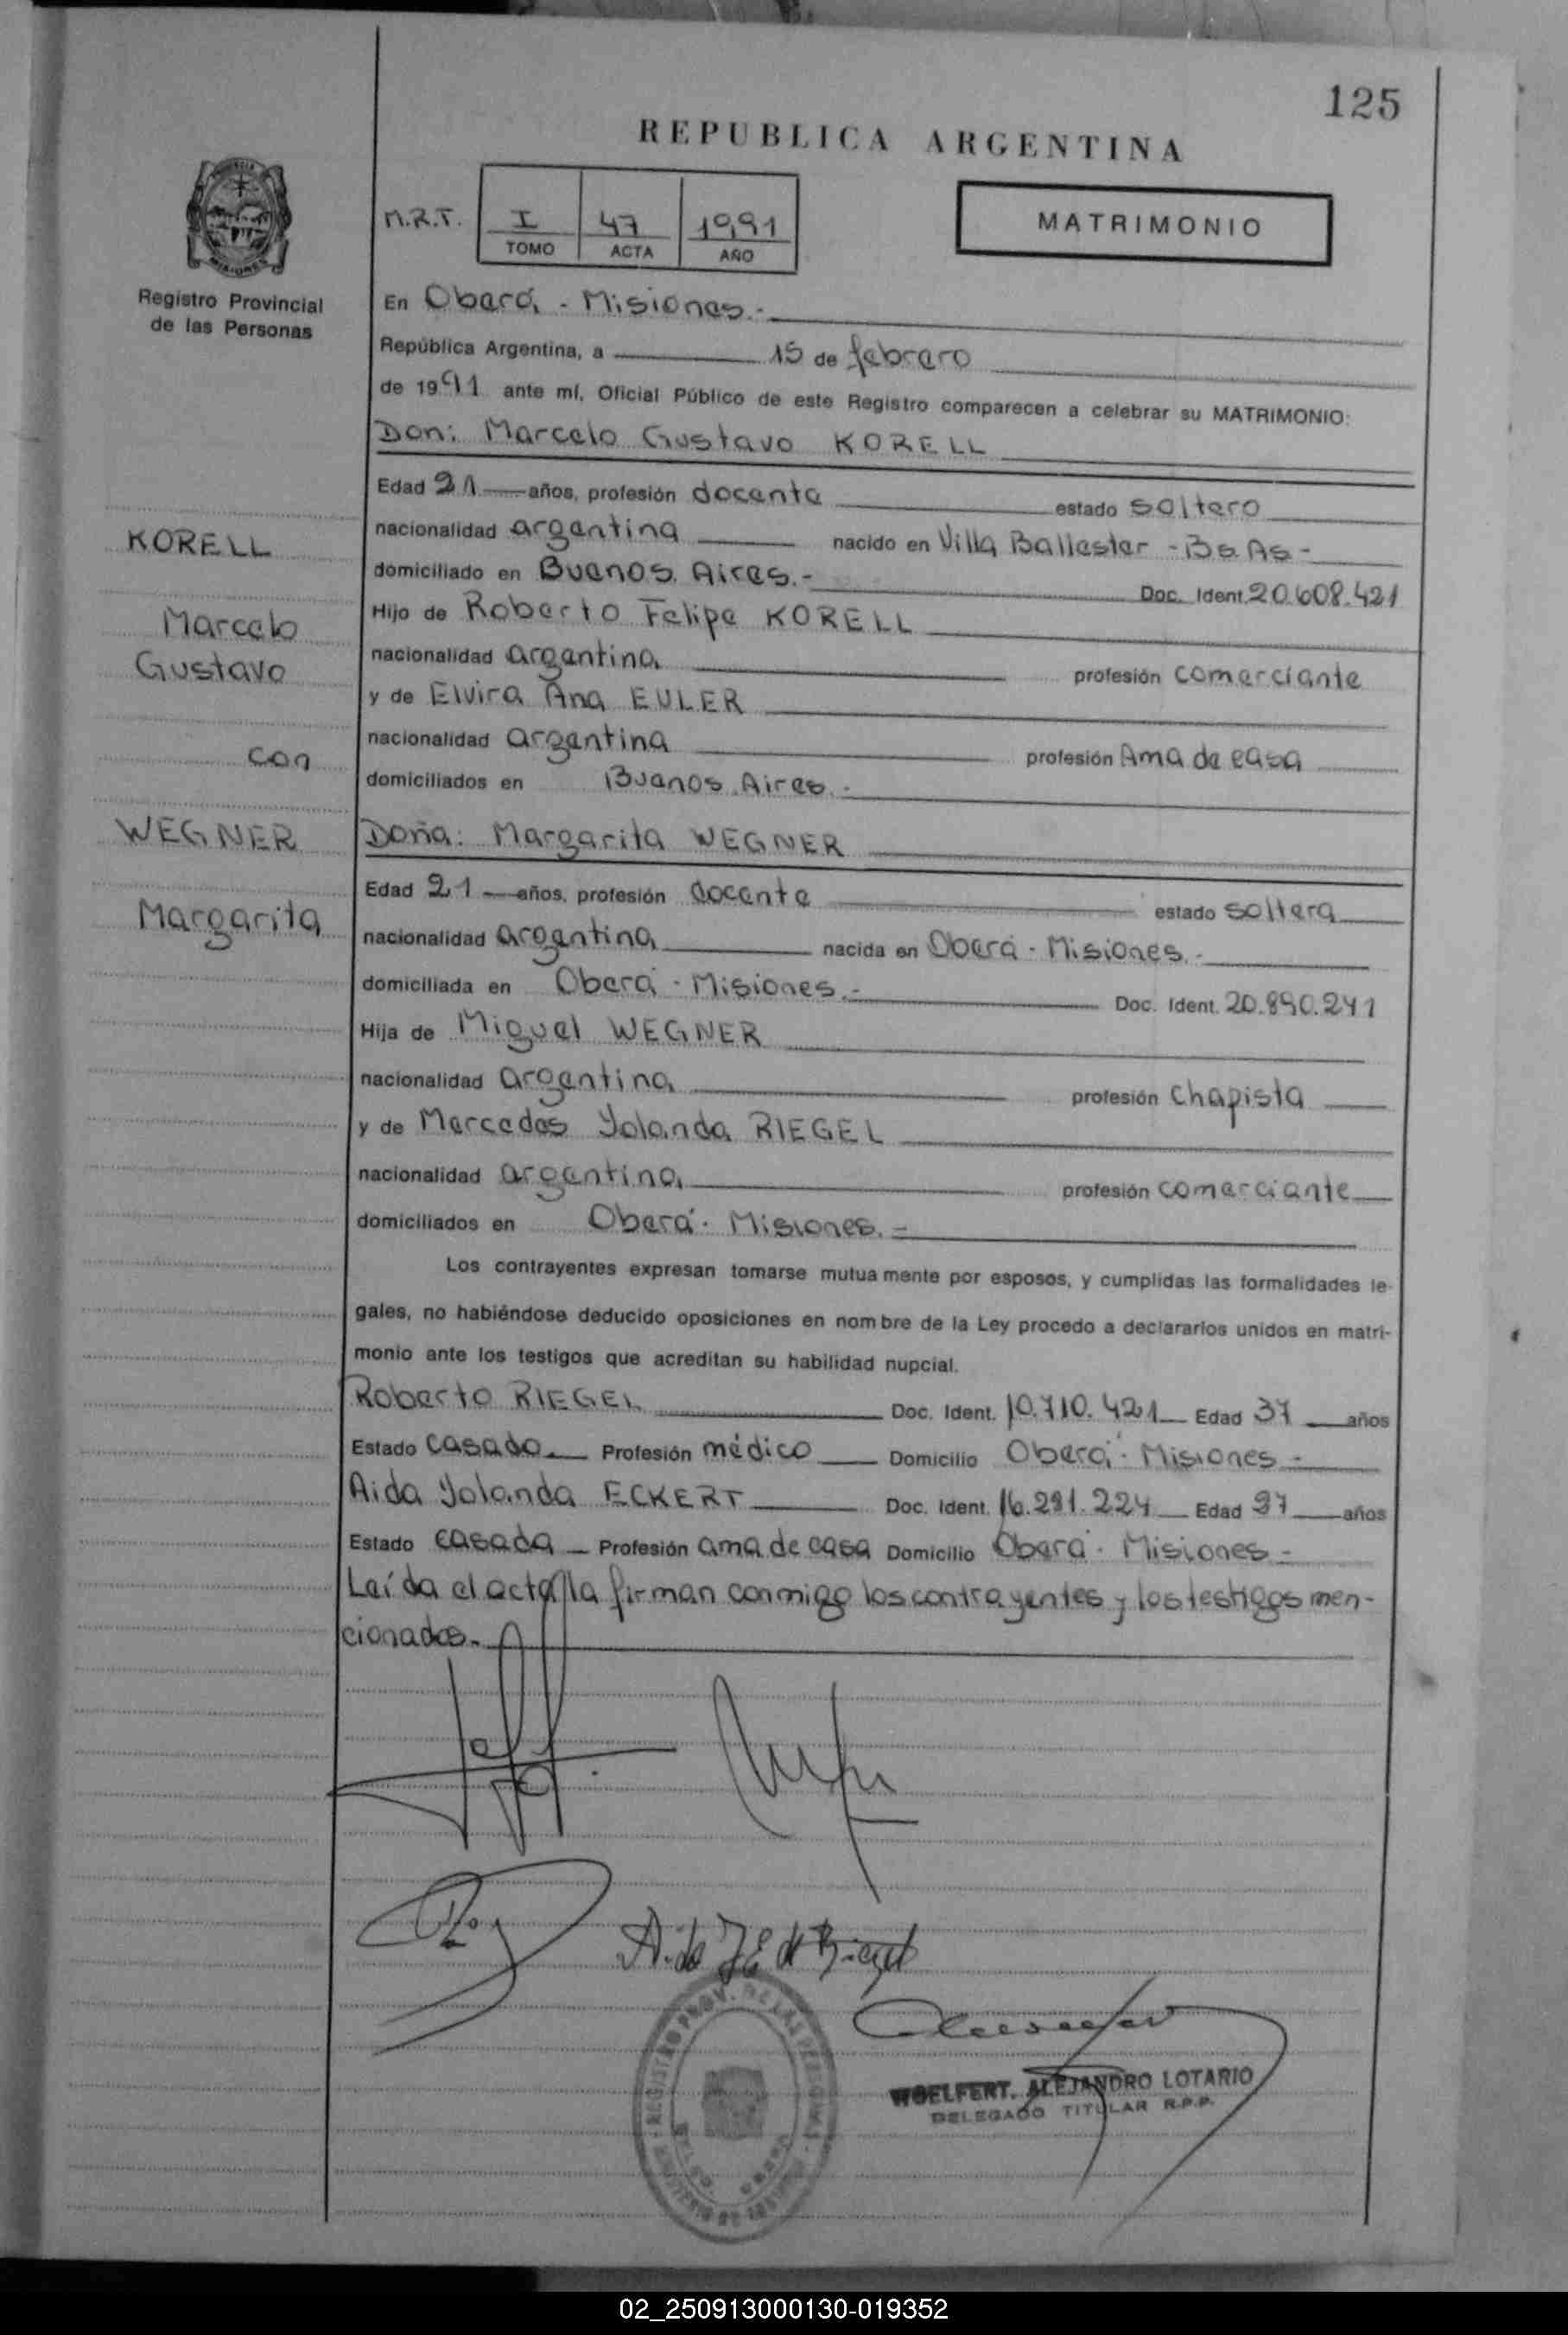 125
REPUBLICA ARGENTINA
M.R.T. I 47 1991
TOMO ACTA AÑO
MATRIMONIO
Registro Provincial
de las Personas
En Oberá - Misiones.-
República Argentina, a 15 de febrero
de 1991 ante mí, Oficial Público de este Registro comparecen a celebrar su MATRIMONIO:
Don: Marcelo Gustavo KORELL
Edad 21 años, profesión docente estado soltero
KORELL
nacionalidad argentina nacido en Villa Ballester - Bs. As -
domiciliado en Buenos Aires.- Doc. Ident. 20.608.421
Marcelo
Hijo de Roberto Felipe KORELL
Gustavo
nacionalidad argentina profesión comerciante
y de Elvira Ana EULER
con
nacionalidad argentina profesión Ama de casa
domiciliados en Buenos Aires.-
WEGNER
Doña: Margarita WEGNER
Edad 21 años, profesión docente estado soltera
Margarita
nacionalidad argentina nacida en Oberá - Misiones.-
domiciliada en Oberá - Misiones.- Doc. Ident. 20.890.241
Hija de Miguel WEGNER
nacionalidad argentina profesión chapista
y de Mercedes Yolanda RIEGEL
nacionalidad argentina profesión comerciante
domiciliados en Oberá - Misiones.-
Los contrayentes expresan tomarse mutua mente por esposos, y cumplidas las formalidades le-
gales, no habiéndose deducido oposiciones en nombre de la Ley procedo a declararlos unidos en matri-
monio ante los testigos que acreditan su habilidad nupcial.
Roberto RIEGEL Doc. Ident. 10.710.421 Edad 37 años
Estado casado. Profesión médico Domicilio Oberá - Misiones -
Aida Yolanda ECKERT Doc. Ident. 16.291.224 Edad 27 años
Estado casada Profesión ama de casa Domicilio Oberá - Misiones -
Leída el acta la firman conmigo los contrayentes y los testigos men-
cionados.-
Aida Y E de Riegel
REGISTRO PROV. DE LAS PERSONAS
WOELFERT, ALEJANDRO LOTARIO
DELEGADO TITULAR R.P.P.
02_250913000130-019352